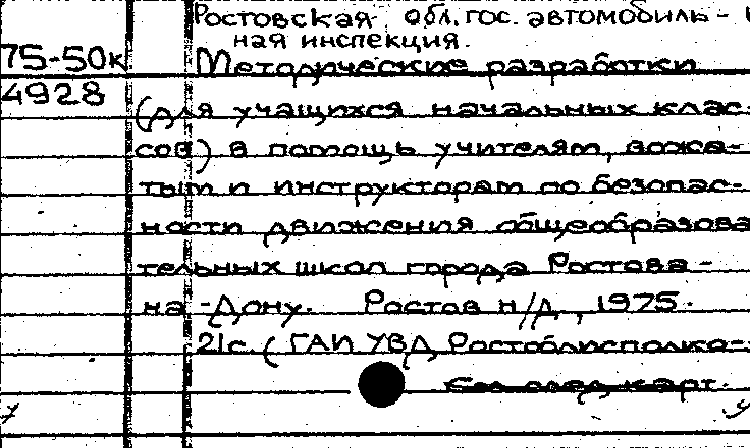 Ростовская обл. гос. автомобиль-
ная инспекция.
75-50к Методические разработки
4928 (для учащихся начальных клас-
сов) в помощь учителям, вожа-
тым и инструкторам по безопас-
ности движения общеобразова
тельных школ города Ростова-
на-Дону. Ростов н/Д, 1975.
21с. (ГАИ УВД Ростоблисполко-
См. след. карт.